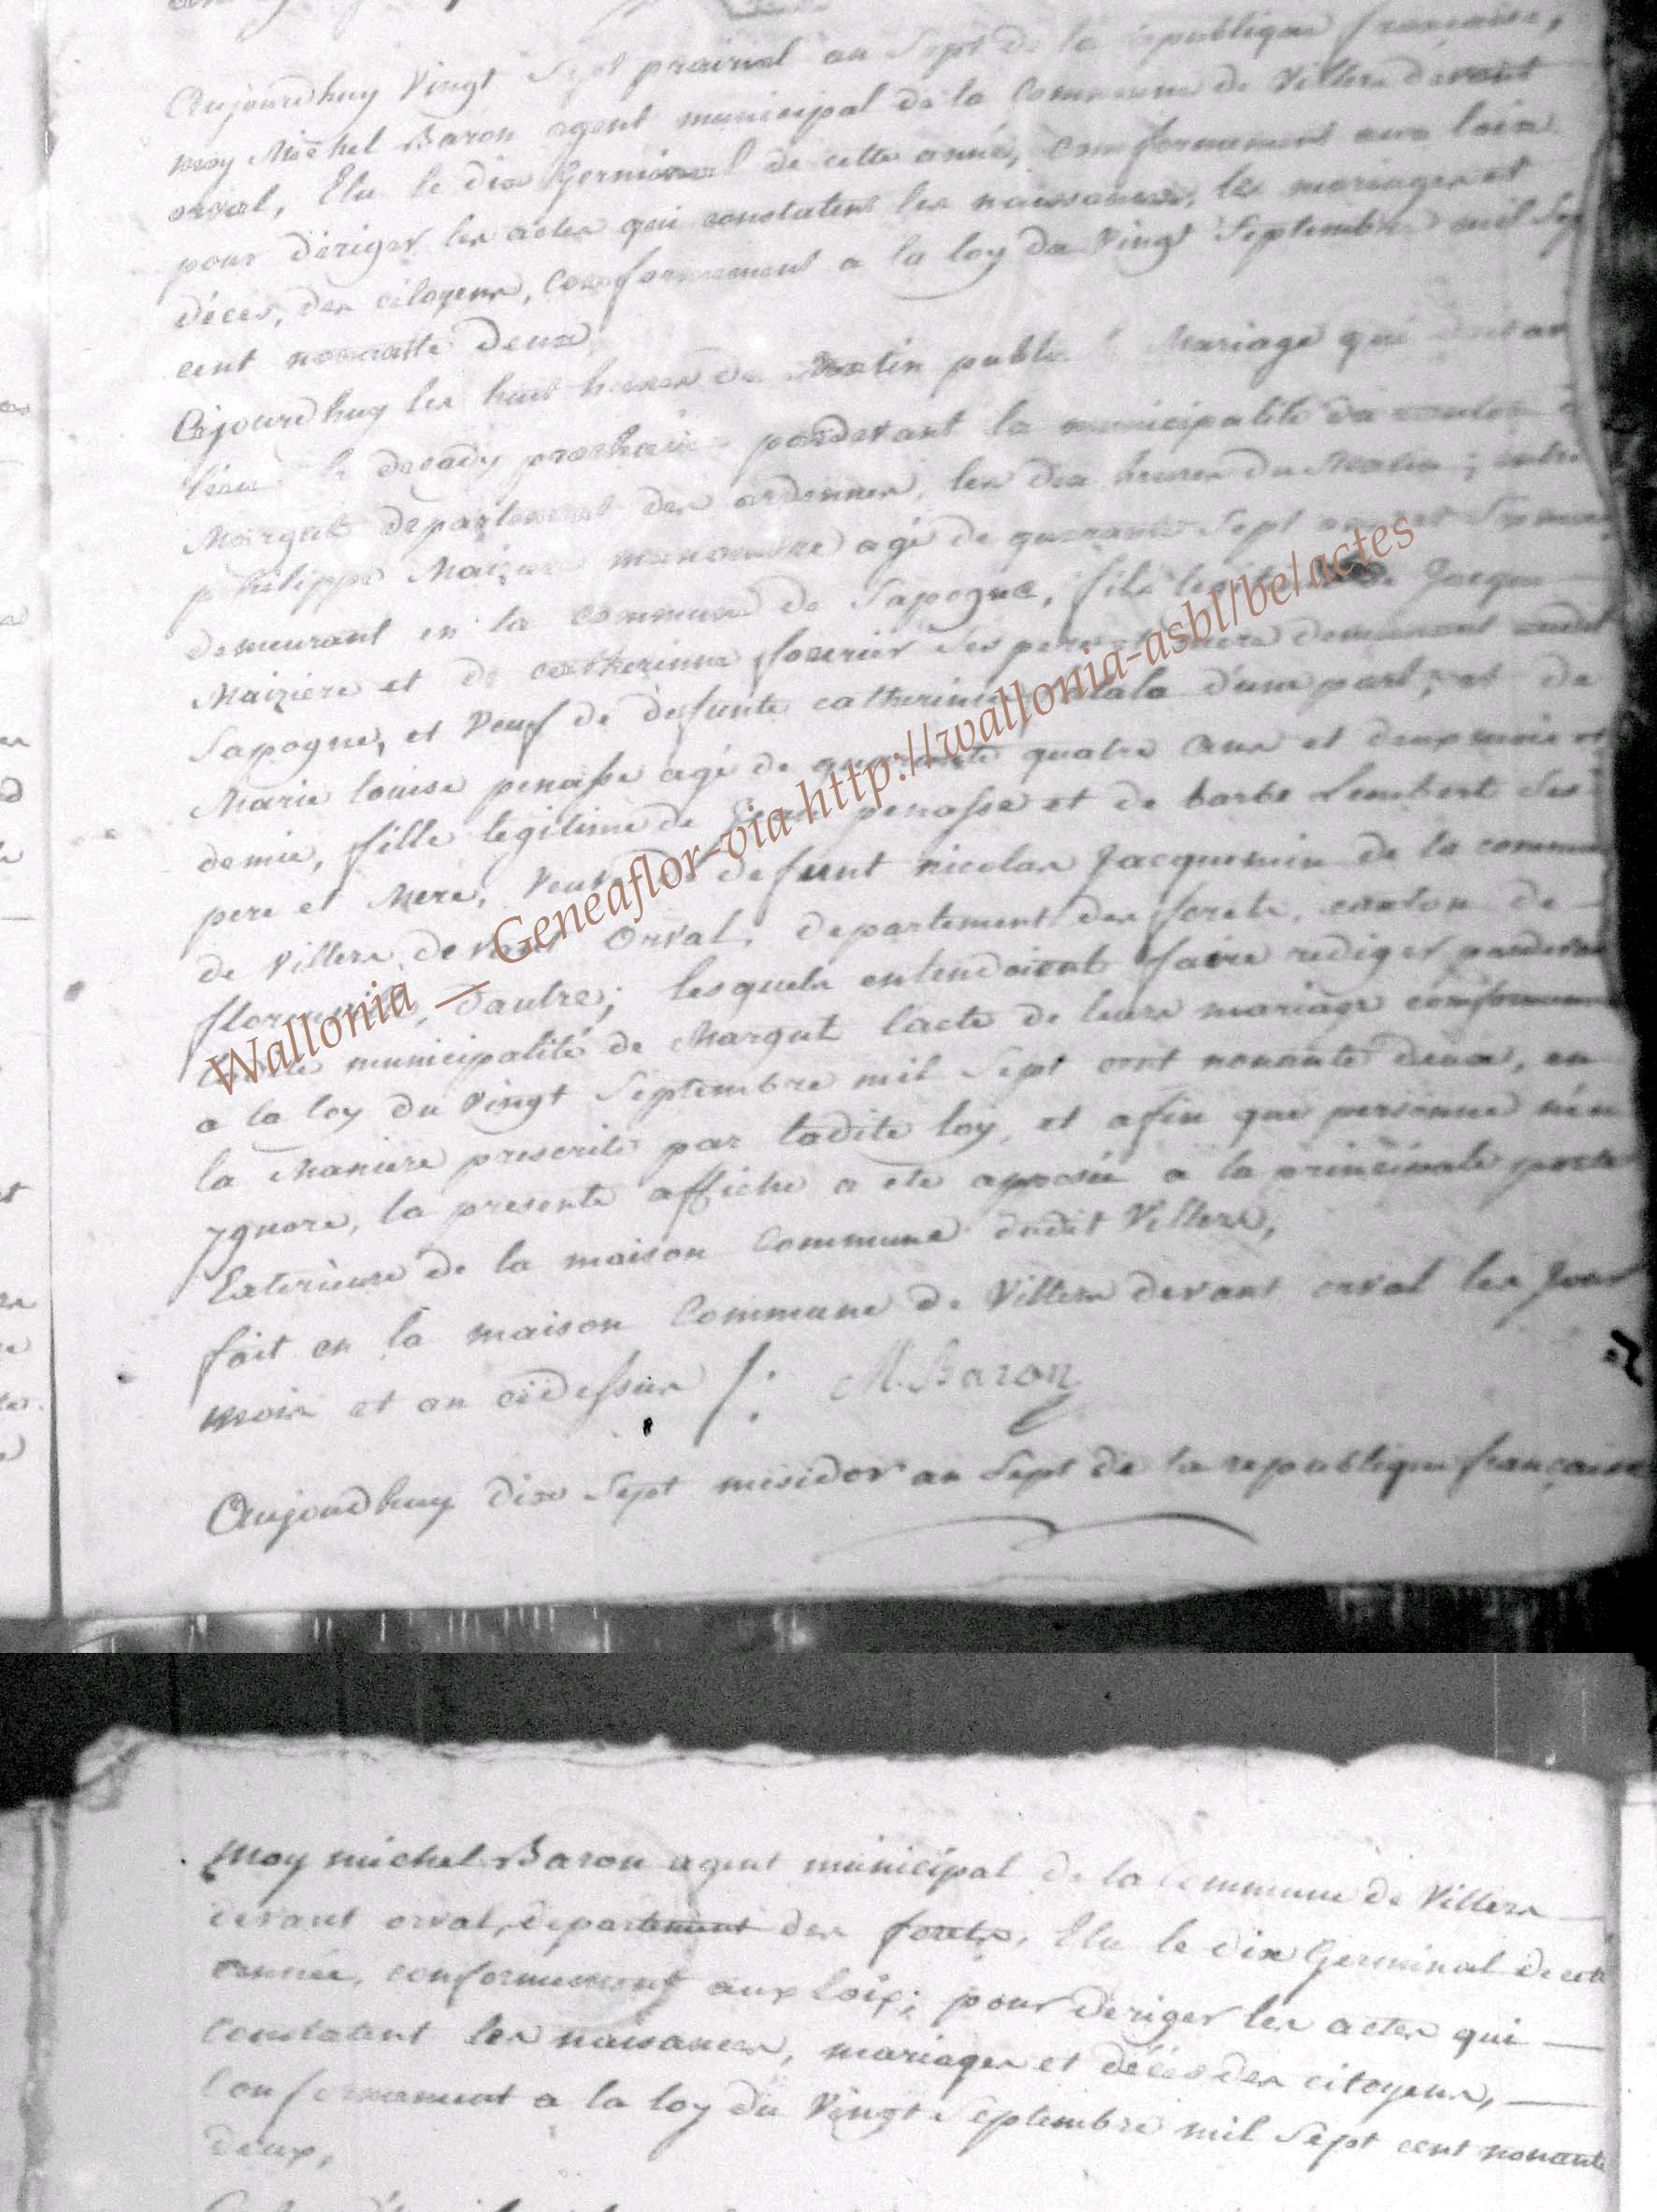 Aujourdhuy Vingt Sept prairial an Sept de la republique francaise,
moy Michel Baron agent municipal de la Commune de Villers devant
orval, Elu le dix Germinal de cette année, conformement aux loix
pour dériger les actes qui constatent les naissances, les mariages et
décès, des citoyens, conformement a la loy du Vingt Septembre mil Sep
cent nonante deux,
Cejourdhuy les huit heures du Matin publié Mariage qui doit av
lieu le decady prochain pardevant la municipalité du canton
Margut departement des ardennes, les dix heures du Matin; entre
philippe Maiziere manoeuvre agé de quarante Sept ans et
demeurant en la commune de Sapogne, fils legitime de Jacque
Maiziere et de catherinne fourier Ses pere et mere demeurant audit
Sapogne, et Veuf de defunte catherine d'une part; et de
Marie louise penasse agé de quarante quatre Ans et deux mois et
demie, fille legitime de penasse et de barbe Lembert Ses
pere et Mere, Veuve de defunt nicolas Jacquemin de la commu
de Villers devant Orval, departement des forets, canton de
florenville, d'autre; lesquels entendoient faire rediger pardevan
municipalité de Margut lacte de leurs mariage conformem
a la loy du Vingt Septembre mil Sept cent nonante deux, en
la Maniere prescrite par ladite loy, et afin que personne n'en
ygnore, la presente affiche a ete aposée a la principale porte
Exterieure de la maison Commune dudit Villers,
fait en la maison Commune de Villers devant orval les Jour
mois et an cidessus /: M. Baron
Aujourdhuy dix Sept mesidor an Sept de la republique francaise
Moy michel Baron agent municipal de la Commune de Villers
devant orval, departement des forets, Elu le dix Germinal de cett
année, conformement aux loix; pour deriger les actes qui
constatent les naisances, mariages et décés des citoyens,
Conformement a la loy du Vingt Septembre mil Sept cent nonante
deux,
Wallonia – Geneaflor-via http://wallonia-asbl/be/actes